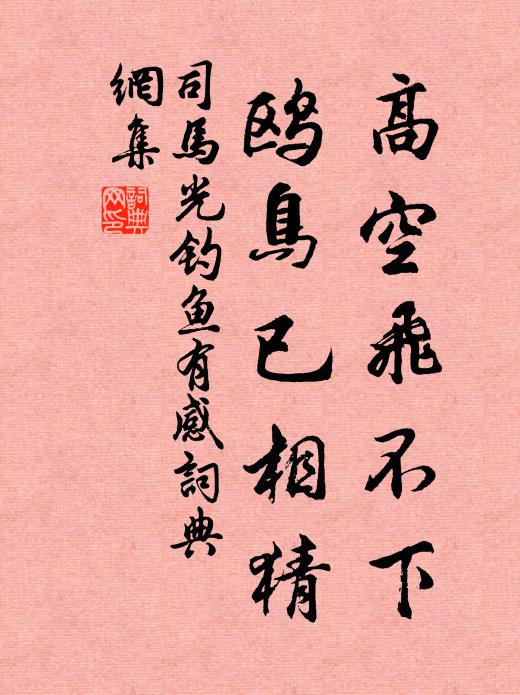 高空飛不下
鷗鳥已相猜
司馬光釣魚有感詞典
網集
詞典
网印